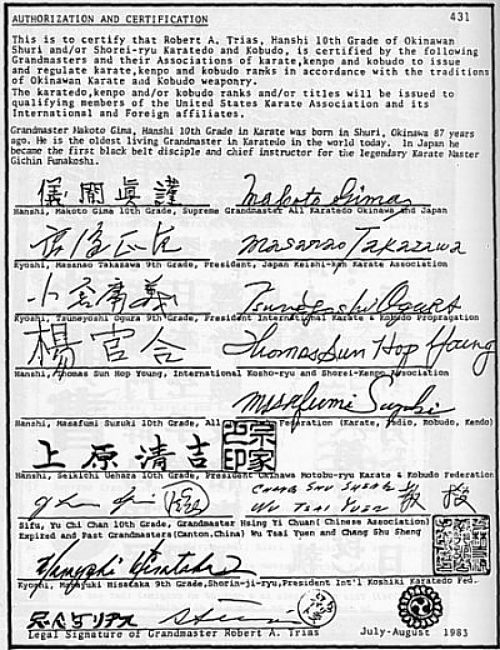 AUTHORIZATION AND CERTIFICATION
431
This is to certify that Robert A. Trias, Hanshi 10th Grade of Okinawan
Shuri and/or Shorei-ryu Karatedo and Kobudo, is certified by the following
Grandmasters and their Associations of karate,kenpo and kobudo to issue
and regulate karate,kenpo and kobudo ranks in accordance with the traditions
of Okinawan Karate and Kobudo weaponry.
The karatedo,kenpo and/or kobudo ranks and/or titles will be issued to
qualifying members of the United States Karate Association and its
International and Foreign affiliates.
Grandmaster Makoto Gima, Hanshi 10th Grade in Karate was born in Shuri, Okinawa 87 years
ago. He is the oldest living Grandmaster in Karatedo in the world today. In Japan he
became the first black belt disciple and chief instructor for the legendary Karate Master
Gichin Funakoshi.
儀間眞謹 Makoto Gima
Hanshi, Makoto Gima 10th Grade, Supreme Grandmaster All Karatedo Okinawa and Japan
Masanao Takazawa
Kyoshi, Masanao Takazawa 9th Grade, President, Japan Keishi-kan Karate Association
Tsuneyoshi Ogura
Kyoshi, Tsuneyoshi Ogura 9th Grade, President International Karate & Kobudo Propagation
楊官合 Thomas Sun Hop Young
Hanshi, Thomas Sun Hop Young, International Kosho-ryu and Shorei-Kenpo Association
Masafumi Suzuki
Hanshi, Masafumi Suzuki 10th Grade, All Federation (Karate, Judo, Kobudo, Kendo)
上原清吉
Hanshi, Seikichi Uehara 10th Grade, President Okinawa Motobu-ryu Karate & Kobudo Federation
CHANG SHU SHENG
WU TSAI YUEN
Sifu, Yu Chi Chan 10th Grade, Grandmaster Hsing Yi Chuan( Chinese Association)
Expired and Past Grandmasters(Canton,China) Wu Tsai Yuen and Chang Shu Sheng
Kyoshi, Masayuki Hisataka 9th Grade,Shorin-ji-ryu,President Int'l Koshiki Karatedo Fed.
Legal Signature of Grandmaster Robert A. Trias
July-August 1983